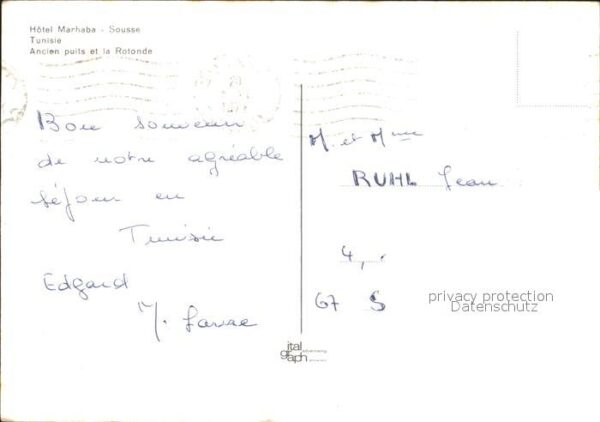 Hôtel Marhaba - Sousse
Tunisie
Ancien puits et la Rotonde
Bon souvenir
de notre agréable
séjour en
Tunisie
Edgard
M. et Mme
RUHL Jean
4,
67 S
privacy protection
Datenschutz
ital
graph